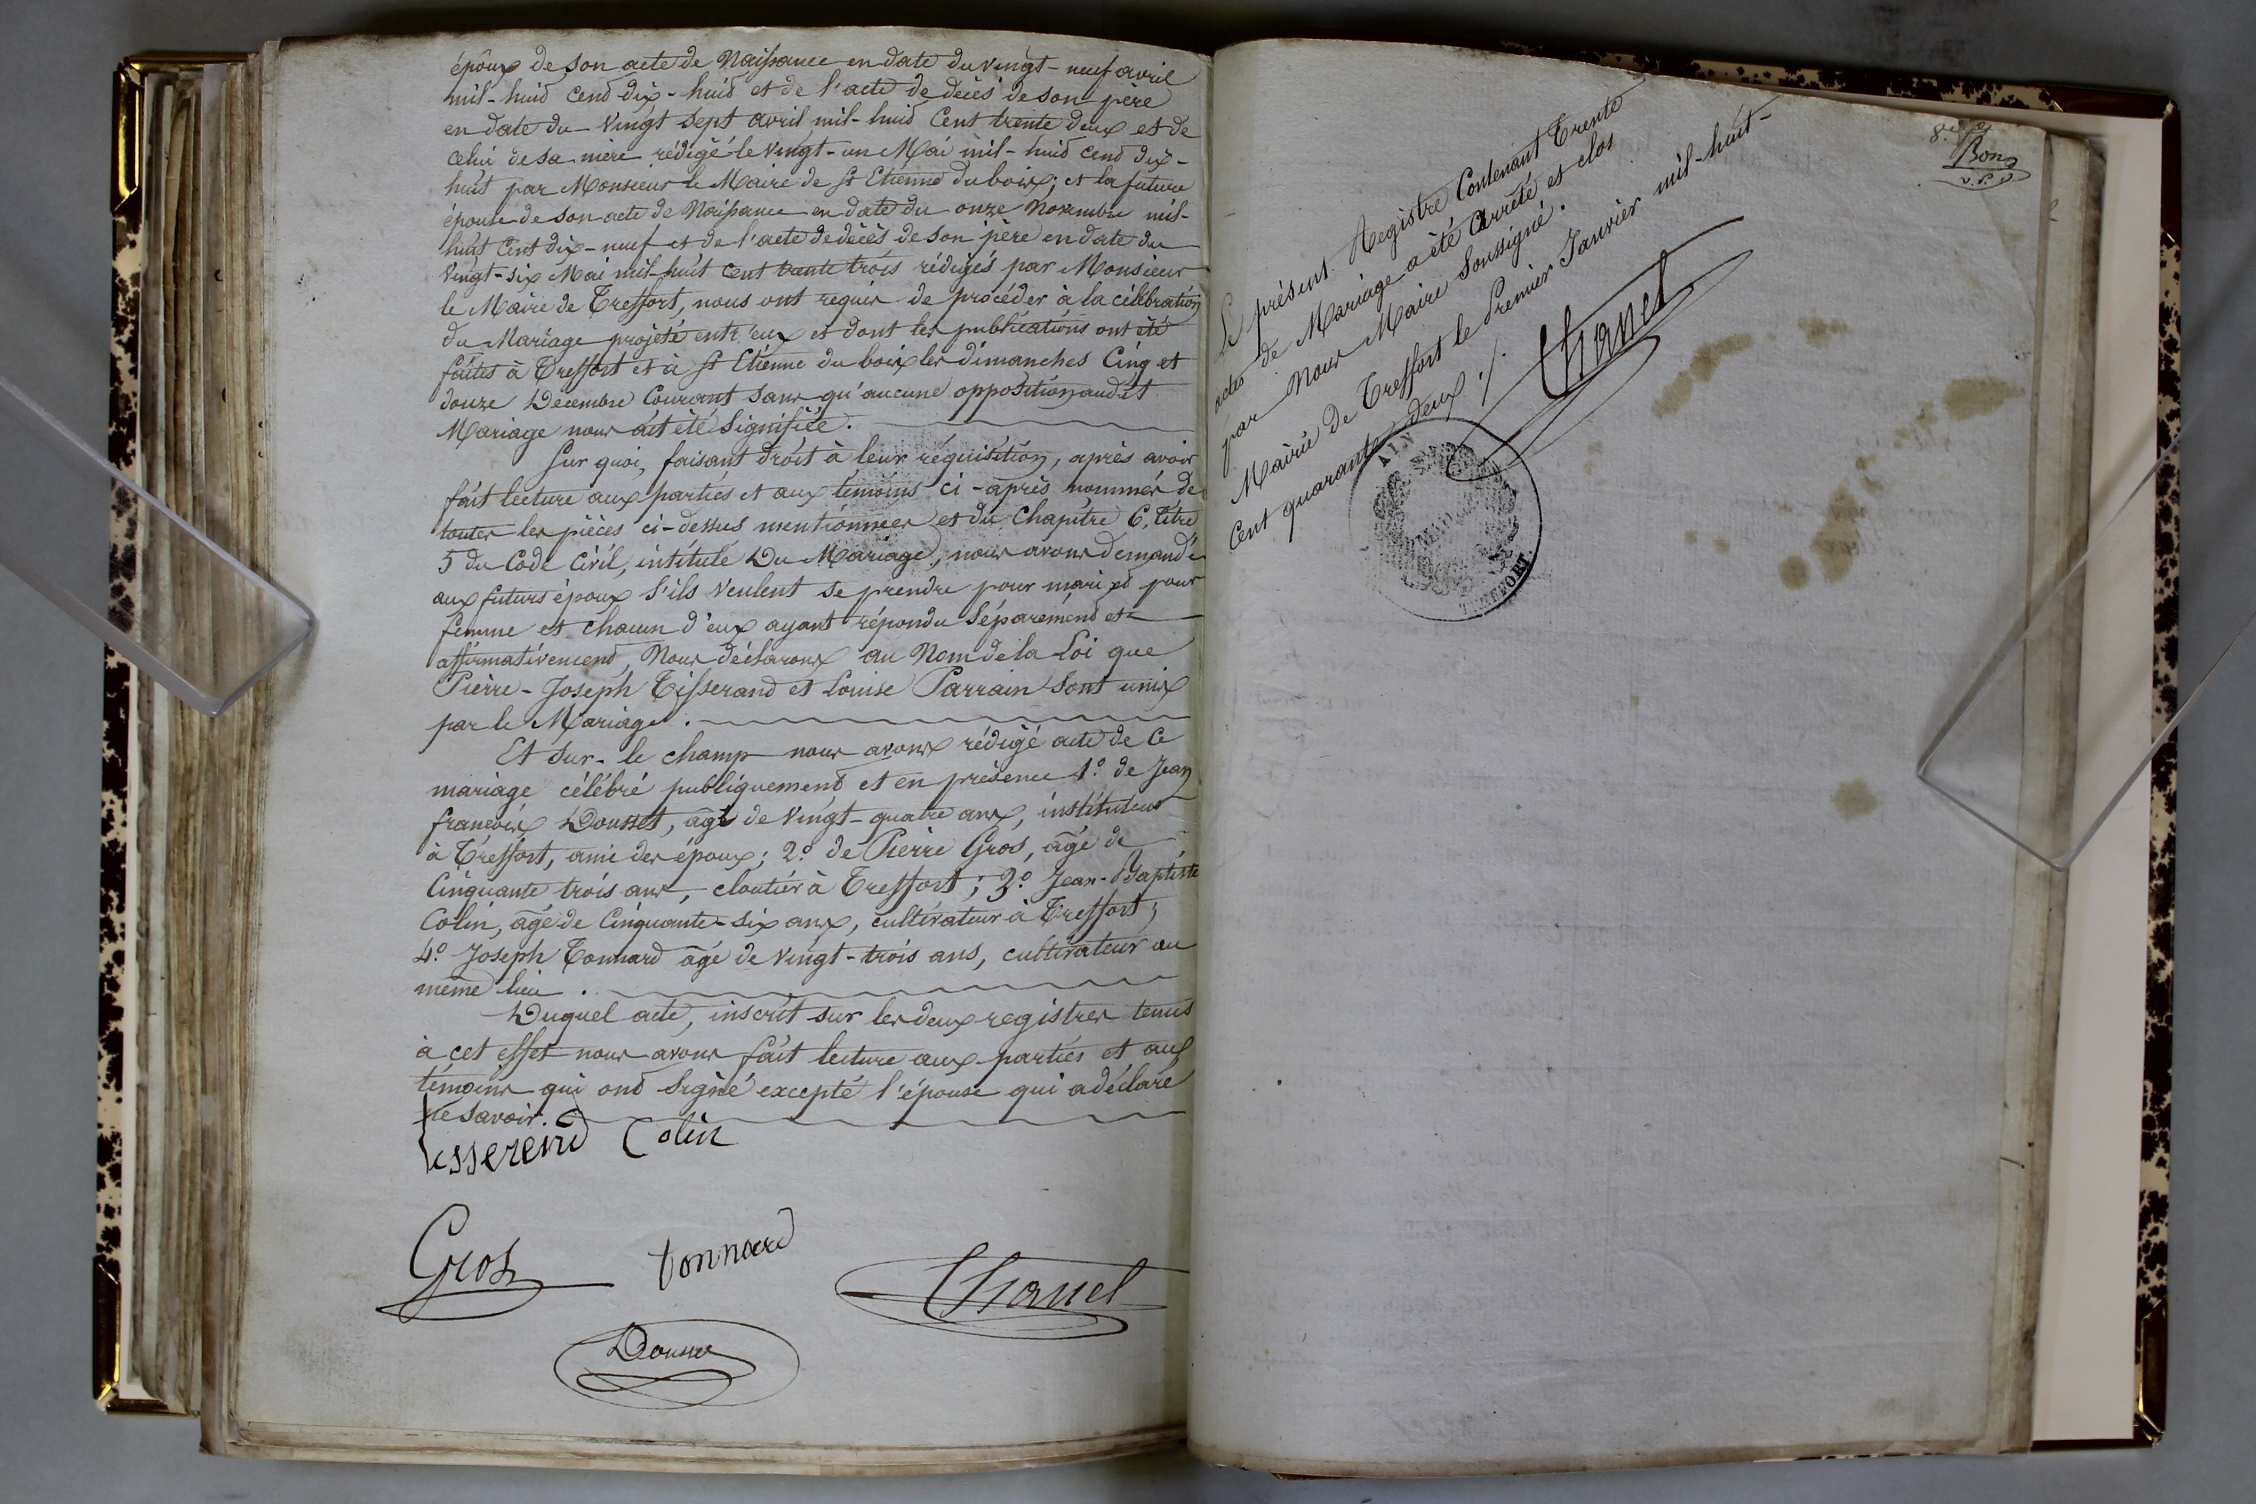 époux de son acte de Naissance en date du vingt-neuf avril
mil-huit cent dix-huit et de l'acte de décès de son père
en date du vingt sept avril mil-huit Cent trente deux et de
celui de sa mère rédigé le vingt-un Mai mil-huit cent dix-
huit par Monsieur le Maire de St Etienne du bois; et la future
épouse de son acte de Naissance en date du onze Novembre mil-
huit Cent dix-neuf et de l'acte de décès de son père en date du
Vingt-six Mai mil-huit cent trente trois rédigés par Monsieur
le Maire de Treffort, nous ont requis de procéder à la célébration
du Mariage projeté entr'eux et dont les publications ont été
faites à Treffort et à St Etienne du bois les dimanches Cinq et
douze Décembre Courant sans qu'aucune opposition audit
Mariage nous ait été signifiée.
Sur quoi, faisant droit à leur réquisition, après avoir
fait lecture aux parties et aux témoins ci-après nommés de
toutes les pièces ci-dessus mentionnées et du Chapitre 6, titre
5 du Code Civil, intitulé Du Mariage, nous avons demandé
aux futurs époux s'ils veulent se prendre pour mari et pour
femme et chacun d'eux ayant répondu séparément et
affirmativement, Nous déclarons au Nom de la Loi que
Pierre-Joseph Tisserand et Louise Parrain sont unis
par le Mariage.
Et sur-le champ nous avons rédigé acte de ce
mariage célébré publiquement et en présence 1.º de Jean
françois Dousset, âgé de vingt-quatre ans, instituteur
à Treffort, ami des époux; 2.º de Pierre Gros, âgé de
Cinquante trois ans, cloutier à Treffort; 3.º Jean-Baptiste
Colin, âgé de Cinquante-six ans, cultivateur à Treffort;
4.º Joseph Tonnard âgé de vingt-trois ans, cultivateur au
même lieu.
Duquel acte, inscrit sur les deux registres tenus
à cet effet nous avons fait lecture aux parties et aux
témoins qui ont signé excepté l'épouse qui a déclaré
ne savoir.
tisserend Colin
Gros tonnard
Chanel
Dousset
8.e
Bon
Le présent Registre Contenant Trente
actes de Mariage a été Arrêté et clos
par Nous Maire Soussigné.
Mairie de Treffort le Premier Janvier mil-huit-
Cent quarante deux ./.
Chanel
AIN
TREFFORT.